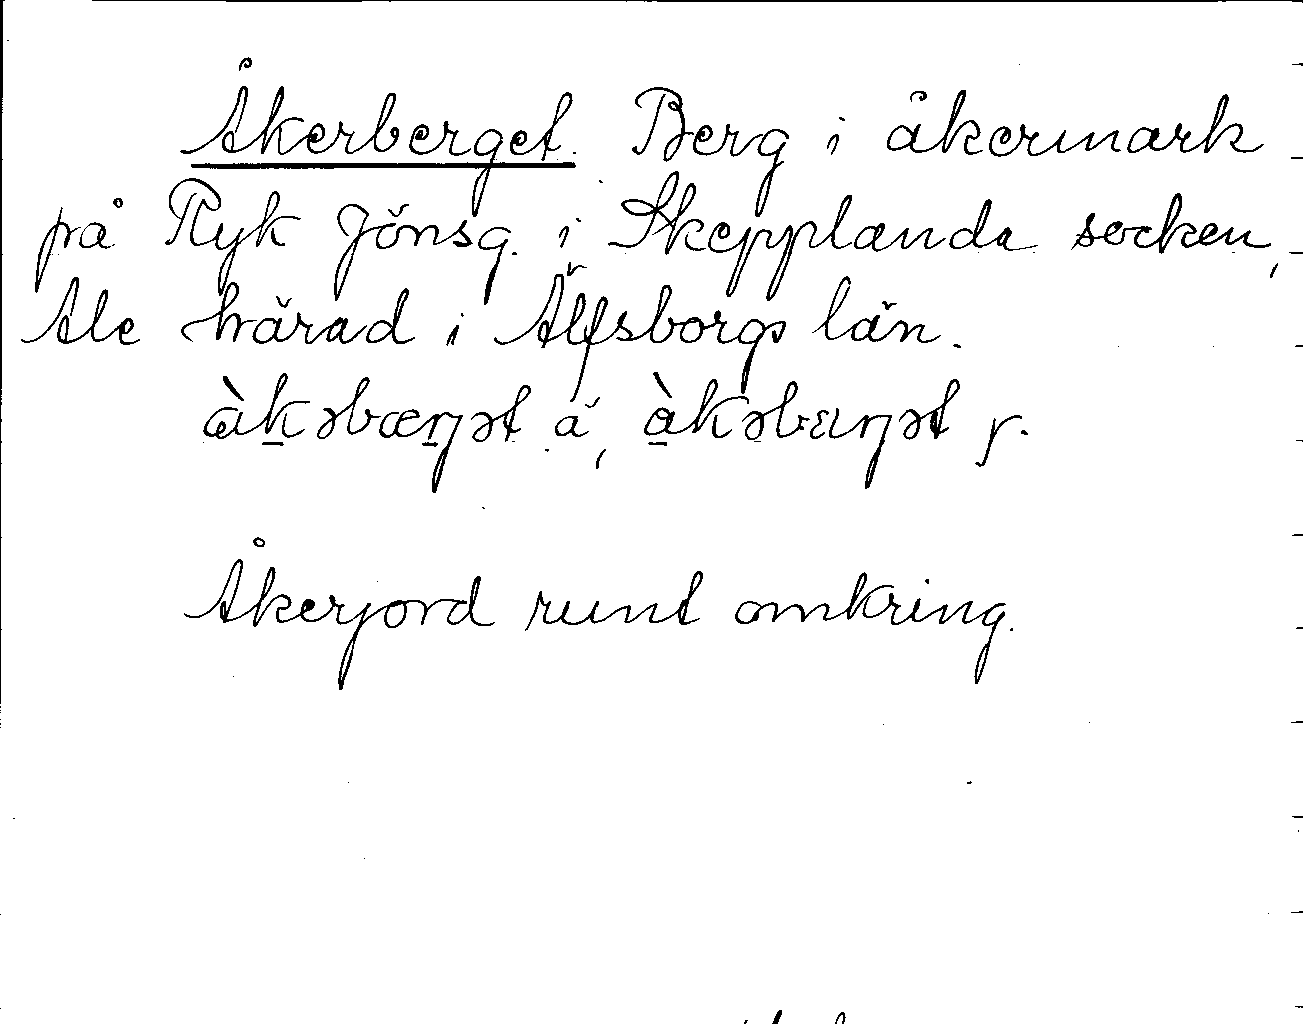 Åkerberget. Berg i åkermark
på Ryk Jönsg. i Skepplanda socken,
Ale härad i Älfsborgs län.
àkəbærjət ä, àkəbærjət r.
Åkerjord runt omkring.